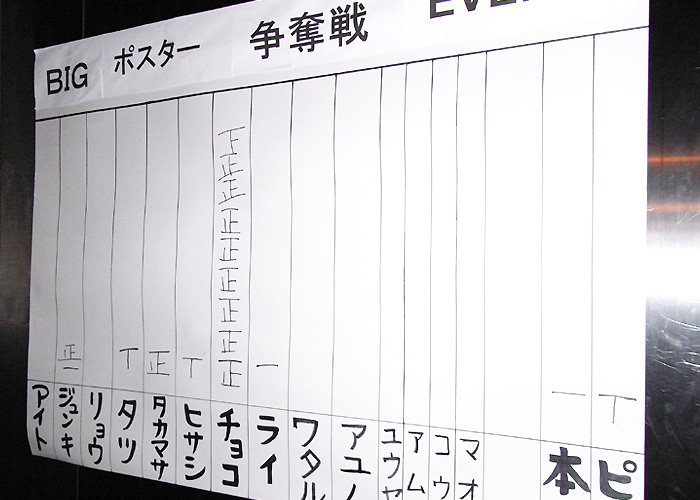 BIG ポスター 争奪戦
下
正
正
正
正
正
正
正
正
正 一 丅 正 丅 一 一 丅
アイト ジュンキ リョウ タツ タカマサ ヒサシ チョコ ライ ワタル アユノ ユウヤ アム コウ マオ 本 ピ